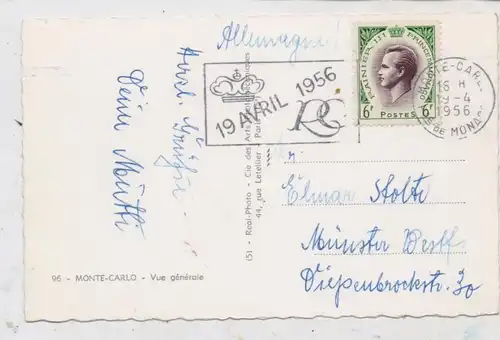 Allemagne!
Herzl. Grüsse
Deine Mutti
96 - MONTE-CARLO - Vue générale
(5) - Real-Photo - Cie des Arts
44, rue Letellier - Paris
19 AVRIL 1956
RG
RAINIER III PRINCE DE MONACO
6F POSTES 6F
MONTE-CARLO
16 H
19-4
1956
PTÉ DE MONACO
Elmar Stolte
Münster Westf.
Diepenbrockstr. 30